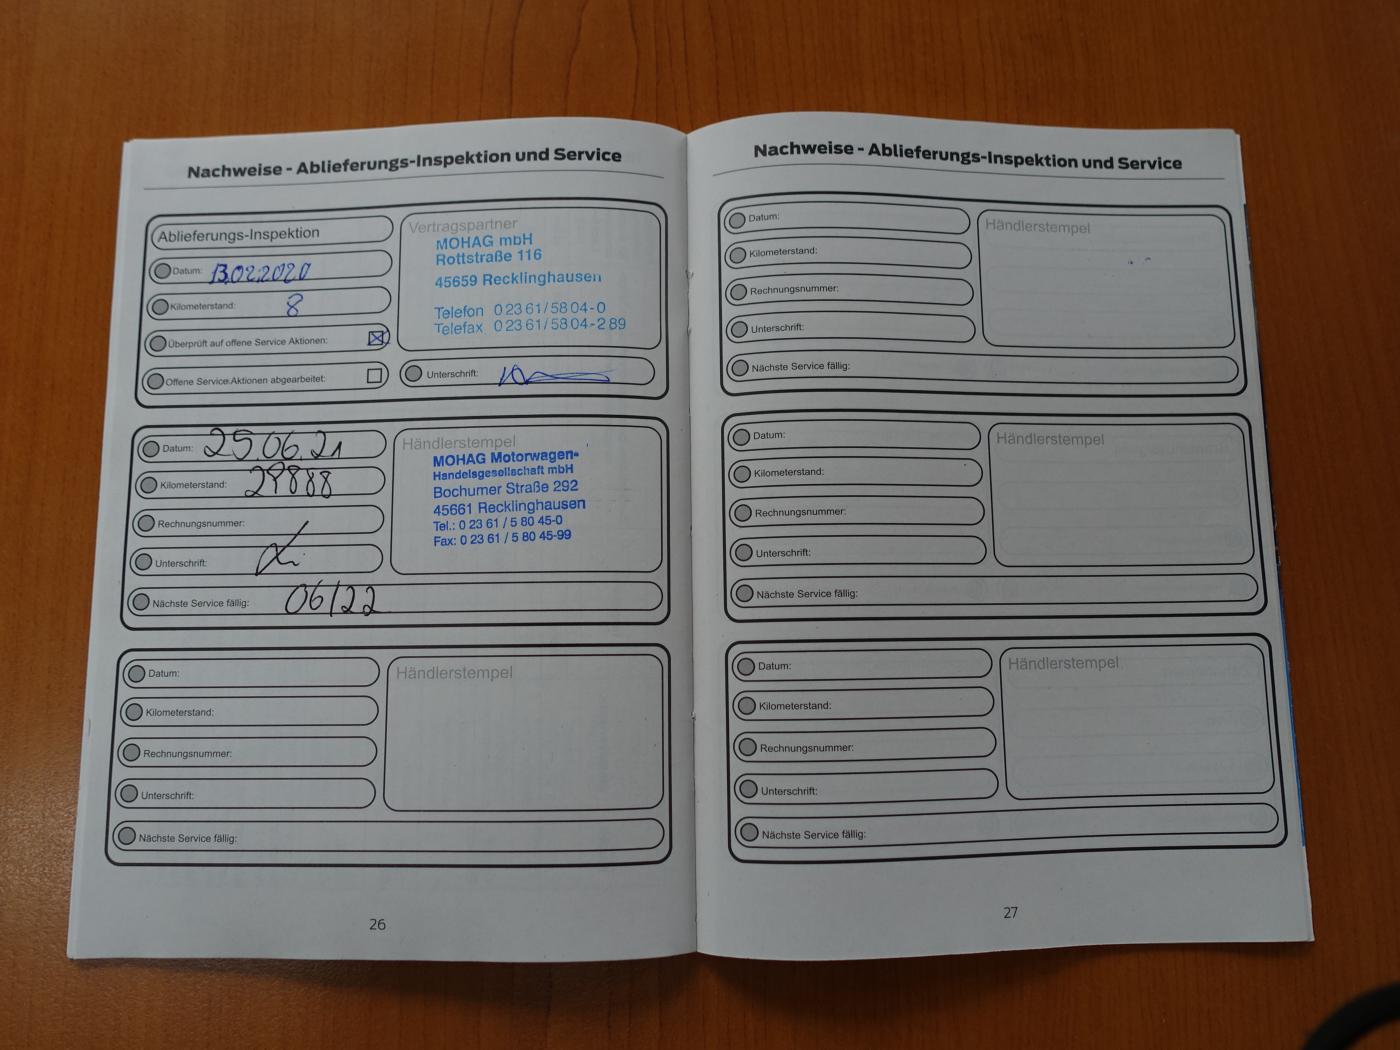 Nachweise - Ablieferungs-Inspektion und Service
Ablieferungs-Inspektion
Datum: 13.02.2020
Kilometerstand: 8
Überprüft auf offene Service Aktionen:
Offene Service Aktionen abgearbeitet:
Vertragspartner
MOHAG mbH
Rottstraße 116
45659 Recklinghausen
Telefon 0 23 61/58 04-0
Telefax 0 23 61/58 04-2 89
Unterschrift:
Datum: 25.06.21
Kilometerstand: 29888
Rechnungsnummer:
Unterschrift:
Nächste Service fällig: 06/22
Händlerstempel
MOHAG Motorwagen-
Handelsgesellschaft mbH
Bochumer Straße 292
45661 Recklinghausen
Tel.: 0 23 61 / 5 80 45-0
Fax: 0 23 61 / 5 80 45-99
Datum:
Kilometerstand:
Rechnungsnummer:
Unterschrift:
Nächste Service fällig:
Händlerstempel
26
Nachweise - Ablieferungs-Inspektion und Service
Datum:
Kilometerstand:
Rechnungsnummer:
Unterschrift:
Nächste Service fällig:
Händlerstempel
Datum:
Kilometerstand:
Rechnungsnummer:
Unterschrift:
Nächste Service fällig:
Händlerstempel
Datum:
Kilometerstand:
Rechnungsnummer:
Unterschrift:
Nächste Service fällig:
Händlerstempel
27